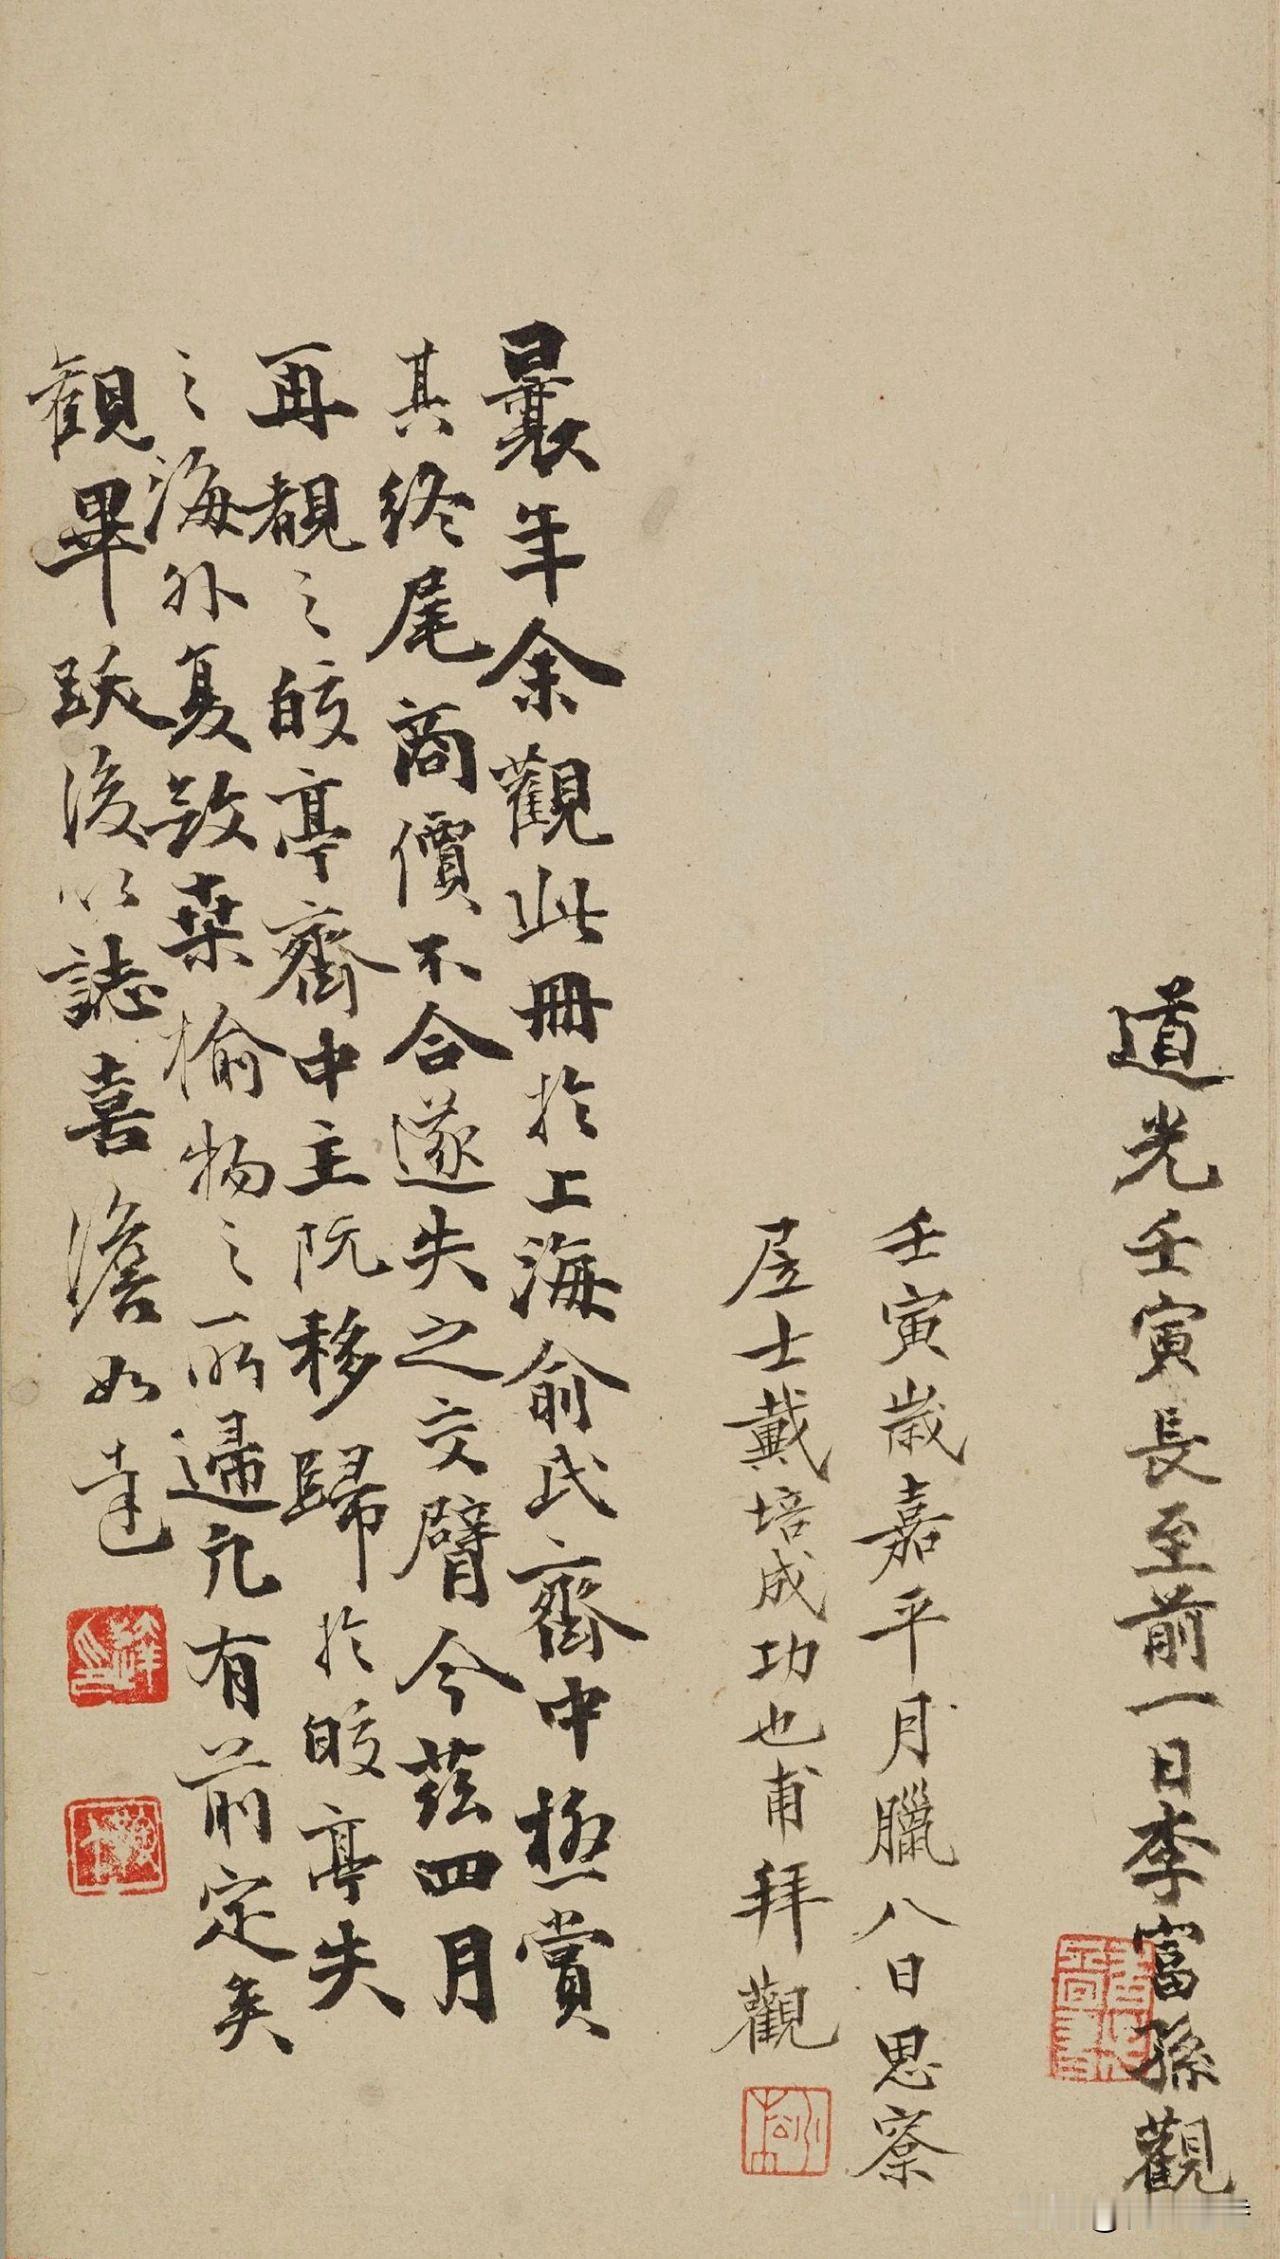 道光壬寅長至前一日李富孫觀
壬寅歲嘉平月臘八日思寮
居士戴培成功也甫拜觀
曩年余觀此冊於上海俞氏齋中極賞
其終尾商價不合遂失之交臂今茲四月
再覩之皎亭齋中主阮移歸於皎亭失
之海外夏敚桒榆物之所遆元有前定矣
観畢跋後以誌喜澹如達